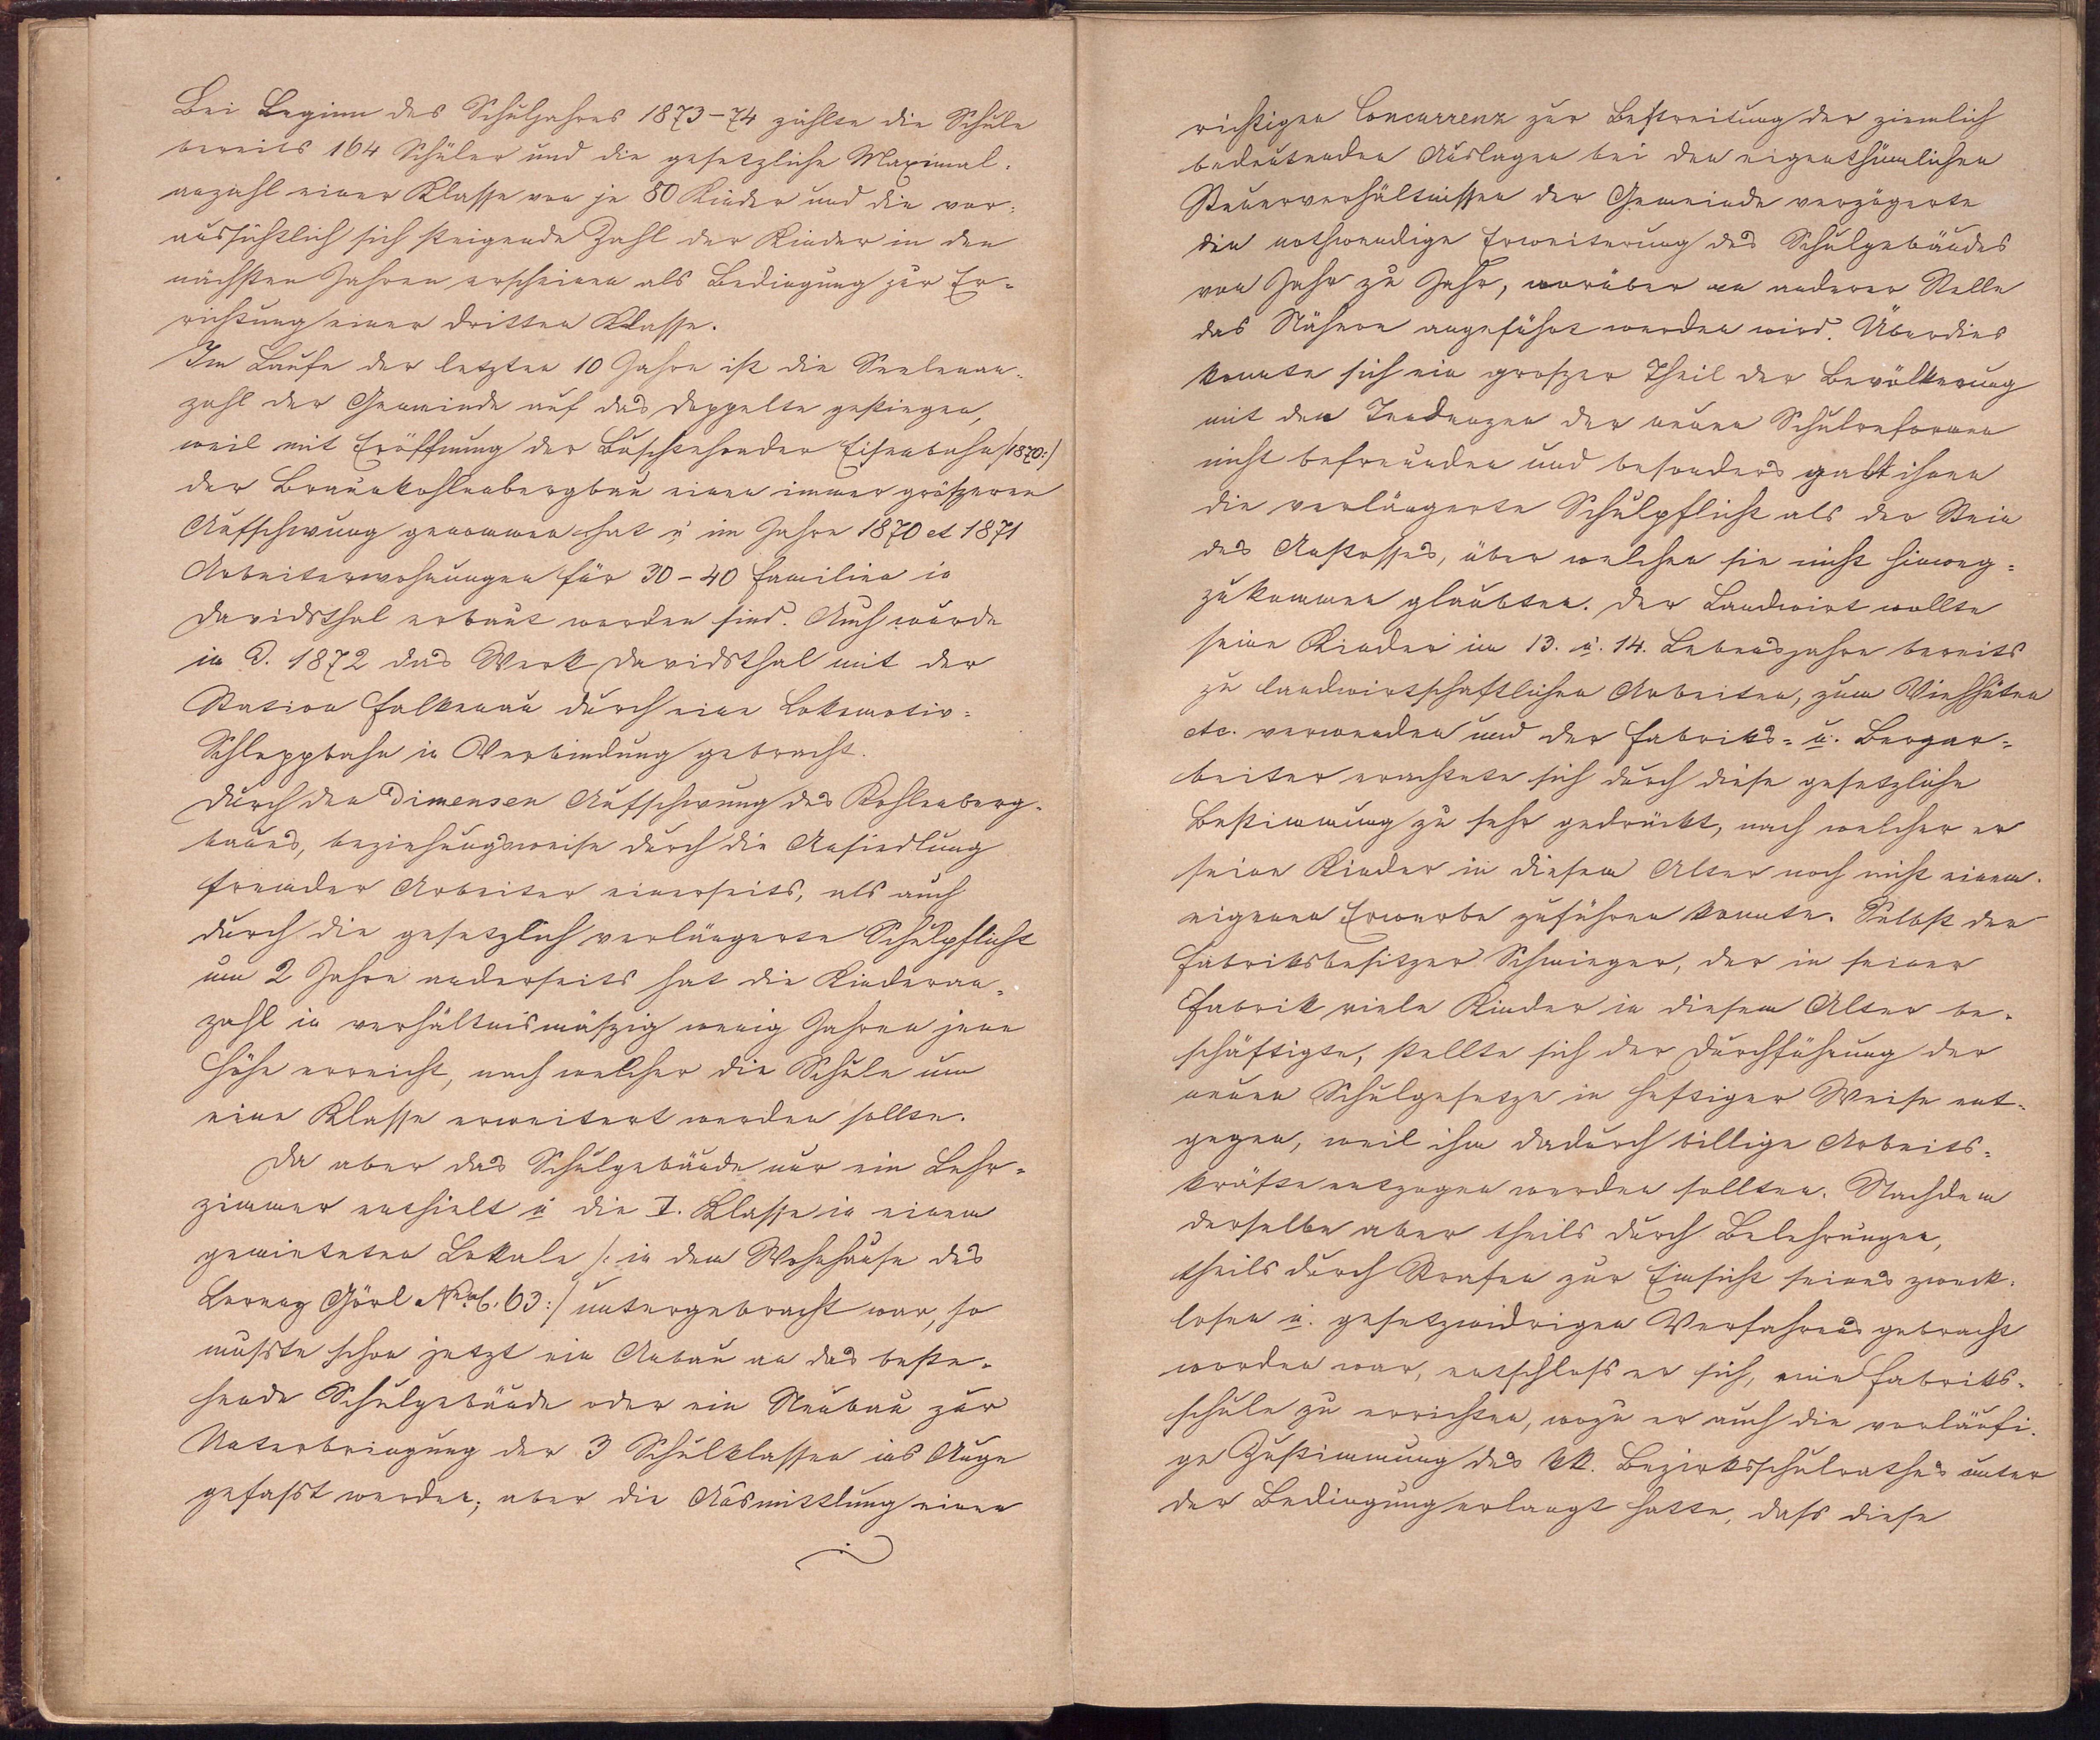 Bei Beginn des Schuljahres 1873–74 zählte die Schule
bereits 164 Schüler und die gesetzliche Maximal-
anzahl einer Klasse von je 80 Kinder und die vor-
aussichtlich sich steigende Zahl der Kinder in den
nächsten Jahren erscheinen als Bedingung zur Er-
richtung einer dritten Klasse.
Im Laufe der letzten 10 Jahre ist die Seelenan-
zahl der Gemeinde auf das Doppelte gestiegen,
weil mit Eröffnung der Buschtehrader Eisenbahn /:1870:/
der Braunkohlenbergbau einen immer größeren
Aufschwung genommen hat u. im Jahre 1870 et 1871
Arbeiterwohnungen für 30–40 Familien in
Davidsthal erbaut worden sind. Auch wurde
in J. 1872 das Werk Davidsthal mit der
Station Falkenau durch eine Lokomotiv-
Schleppbahn in Verbindung gebracht.
Durch den Dimensen Aufschwung des Kohlenberg-
baues, beziehungsweise durch die Ansiedlung
fremder Arbeiter einerseits, als auch
durch die gesetzlich verlängerte Schulpflicht
um 2 Jahre anderseits hat die Kinderan-
zahl in verhältnismäßig wenig Jahren jene
Höhe erreicht, nach welcher die Schule um
eine Klasse erweitert werden sollte.
Da aber das Schulgebäude nur ein Lehr-
zimmer enthielt u. die I. Klasse in einem
gemieteten Lokale /: in dem Wohnhause des
Lorenz Görl Nro. 63:/ untergebracht war, so
musste schon jetzt ein Anbau an das beste-
hende Schulgebäude oder ein Neubau zur
Unterbringung der 3 Schulklassen ins Auge
gefasst werden; aber die Ausmittlung einer
richtigen Concurrenz zur Bestreitung der ziemlich
bedeutenden Auslagen bei den eigenthümlichen
Steuerverhältnissen der Gemeinde verzögerte
die nothwendige Erweiterung des Schulgebäudes
von Jahr zu Jahr, worüber an anderer Stelle
das Nähere angeführt werden wird. Überdies
konnte sich ein großer Theil der Bevölkerung
mit den Tendenzen der neuen Schulreformen
nicht befreunden und besonders galt ihnen
die verlängerte Schulpflicht als der Stein
des Anstosses, über welchen sie nicht hinweg-
zukommen glaubten. Der Landwirt wollte
seine Kinder im 13. u. 14. Lebensjahre bereits
zu landwirtschaftlichen Arbeiten, zum Viehhüten
etc. verwenden und der Fabriks- u. Bergar-
beiter erachtete sich durch diese gesetzliche
Bestimmung zu sehr gedrückt, nach welcher er
seine Kinder in diesem Alter noch nicht einem
eigenen Erwerbe zuführen konnte. Selbst der
Fabriksbesitzer Schwieger, der in seiner
Fabrik viele Kinder in diesem Alter be-
schäftigte, stellte sich der Durchführung der
neuen Schulgesetze in heftiger Weise ent-
gegen, weil ihm dadurch billige Arbeits-
kräfte entzogen werden sollten. Nachdem
derselbe aber theils durch Belehrungen,
theils durch Strafen zur Einsicht seines zweck-
losen u. gesetzwidrigen Verfahrens gebracht
worden war, entschloss er sich, eine Fabriks-
schule zu errichten, wozu er auch die vorläufi-
ge Zustimmung des kk. Bezirksschulrathes unter
der Bedingung erlangt hatte, dass diese